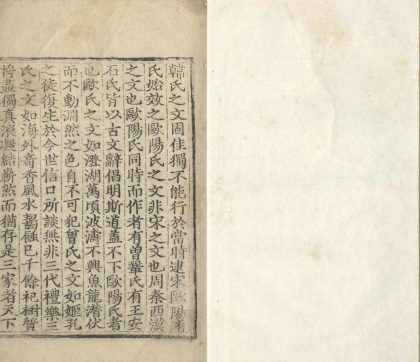 韓氏之文固佳獨不能行於當時逮宋歐陽
氏始效之歐陽氏之文非宋之文也周秦西漢
之文也歐陽氏同時而作者有曾鞏氏有王安
石氏皆以古文辭倡明斯道蓋不下歐陽氏者
也歐氏之文如澄湖萬頃波濤不興魚龍潛伏
而不動淵然之色自不可犯曾氏之文如姬孔
之徒復生於今世信口所談無非三代禮樂王
氏之文如海外奇香風水齧蝕已十餘祀樹質
將盡獨真液凝結嶄然而猶存是三家者天下